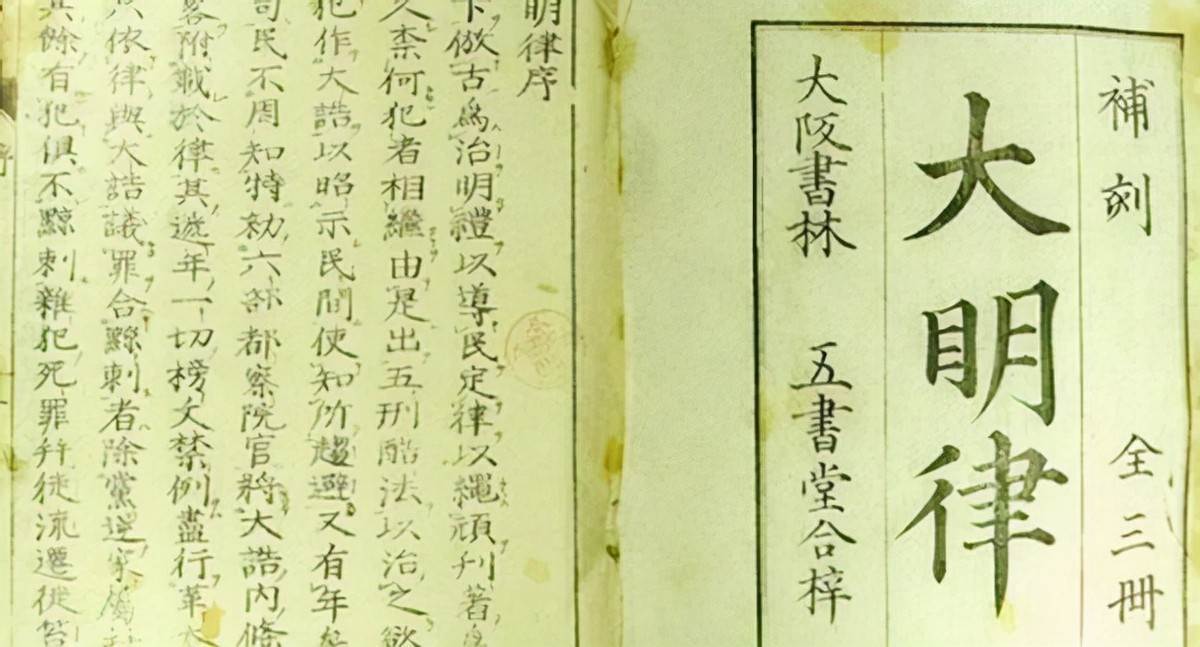 補刻 全三冊
大明律
大阪書林 五書堂合梓
明律序
下倣古爲治明禮以導民定律以繩頑刊著爲
久柰何犯者相繼由是出五刑酷法以治之欲
犯作大誥以昭示民間使知所趨避又有年
司民不周知特勑六部都察院官將大誥内條
畧附載於律其遞年一切榜文禁例盡行革
只依律與大誥議罪合黥刺者除黨逆家屬
其餘有犯俱不黥刺雜犯死罪幷徒流遷徙笞